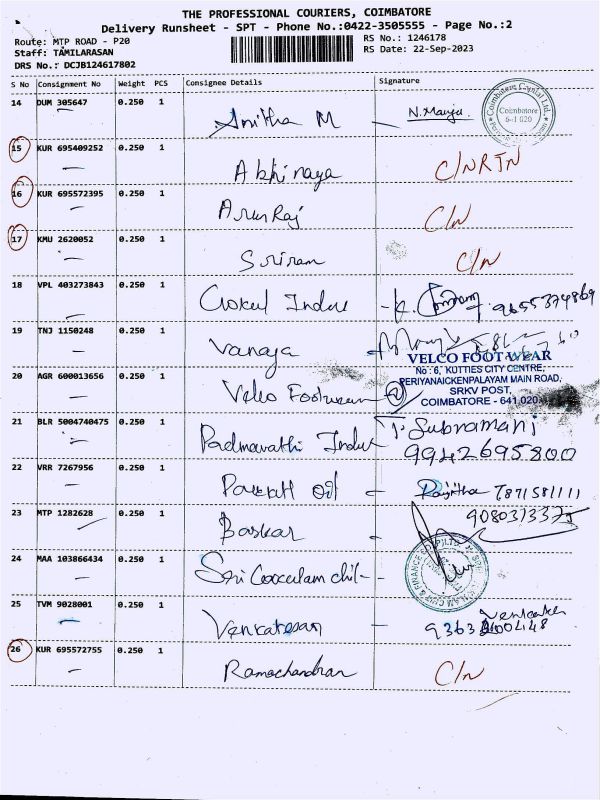 THE PROFESSIONAL COURIERS, COIMBATORE
Delivery Runsheet - SPT - Phone No.:0422-3505555 - Page No.:2
Route: MTP ROAD - P20
RS No.: 1246178
Staff: TAMILARASAN
RS Date: 22-Sep-2023
DRS No.: DCJB124617802
S No Consignment No Weight PCS Consignee Details Signature
14 DUM 305647 0.250 1 Anitha M - N. Manju
Coimbatore Capital Ltd.
Coimbatore
641 020
15 KUR 695409252 0.250 1 Abhinaya C/NRTN
16 KUR 695572395 0.250 1 ArunRaj C/N
17 KMU 2620052 0.250 1 Sriram C/N
18 VPL 403273843 0.250 1 Gokul Indus - K. 9655374869
19 TNJ 1150248 0.250 1 Vanaja
20 AGR 600013656 0.250 1 Velco Footwear
VELCO FOOT WEAR
No : 6, KUTTIES CITY CENTRE,
PERIYANAICKENPALAYAM MAIN ROAD,
SRKV POST,
COIMBATORE - 641 020
21 BLR 5004740475 0.250 1 Padmavathi Indus T. Subramani
9942695800
22 VRR 7267956 0.250 1 Oil - 7871581111
23 MTP 1282628 0.250 1 Baskar - 9080373375
24 MAA 103866434 0.250 1 Sri Gokulam Chit -
25 TVM 9028001 0.250 1 Venkatesan - Venkatesh
26 KUR 695572755 0.250 1 Ramachandran C/N